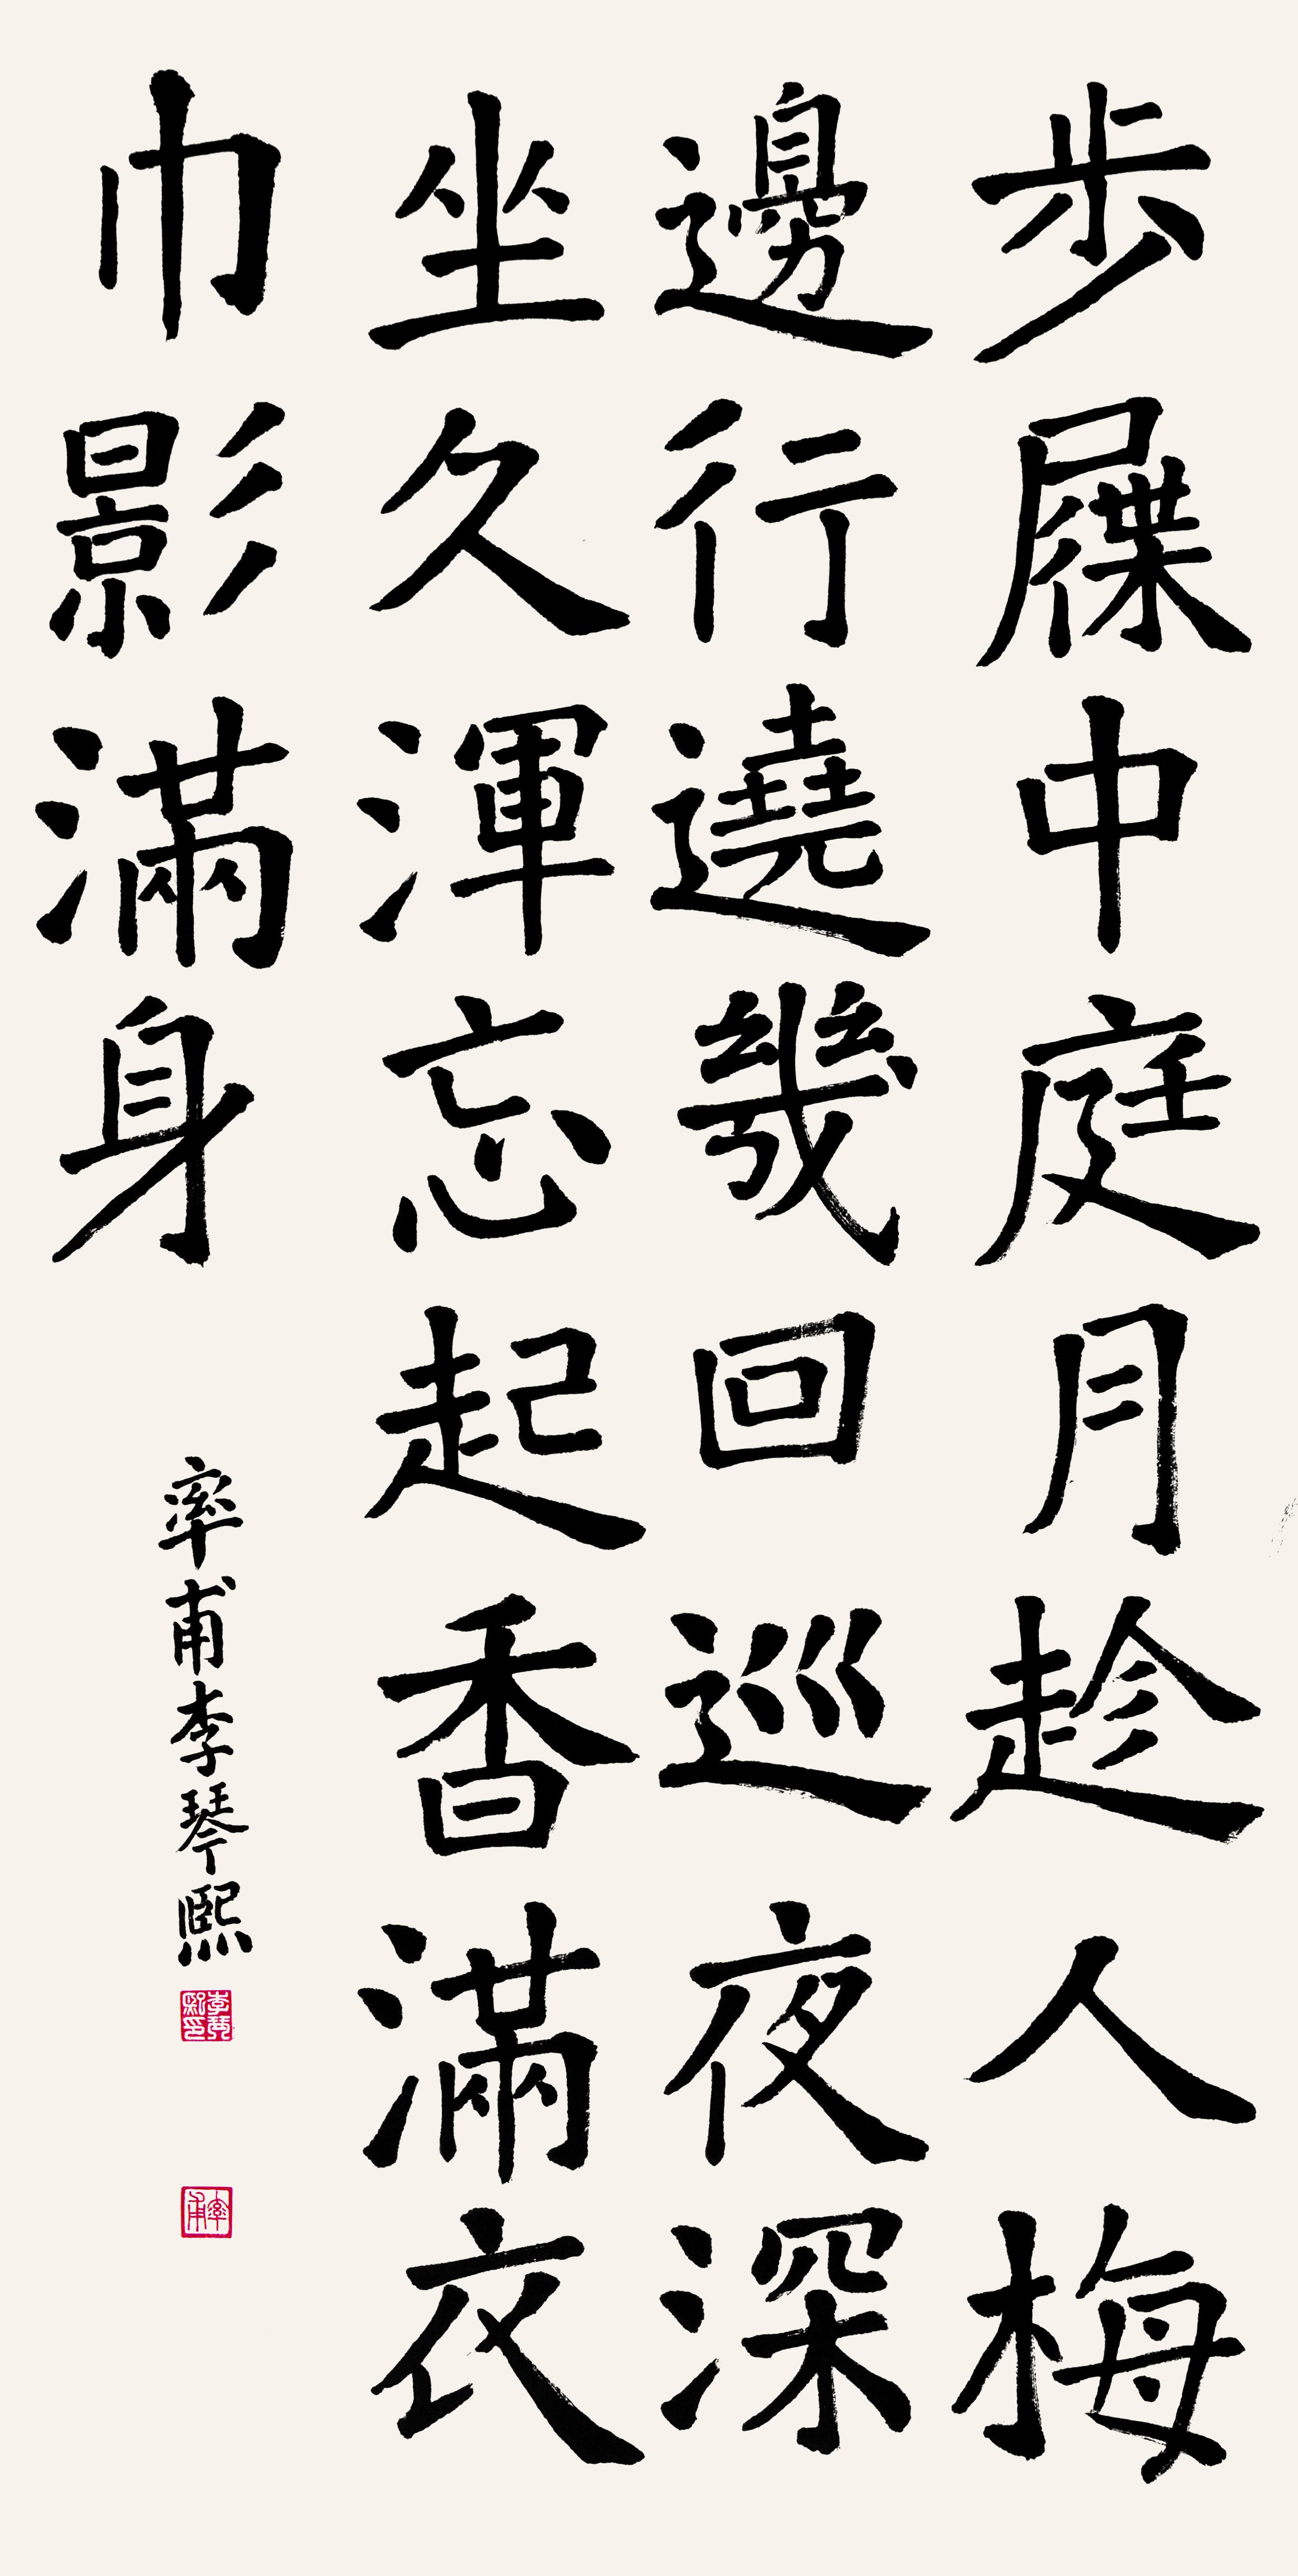 步屧中庭月趁人梅
邊行遶幾回巡夜深
坐久渾忘起香滿衣
巾影滿身
率甫李琴熙
李琴熙印
率甫